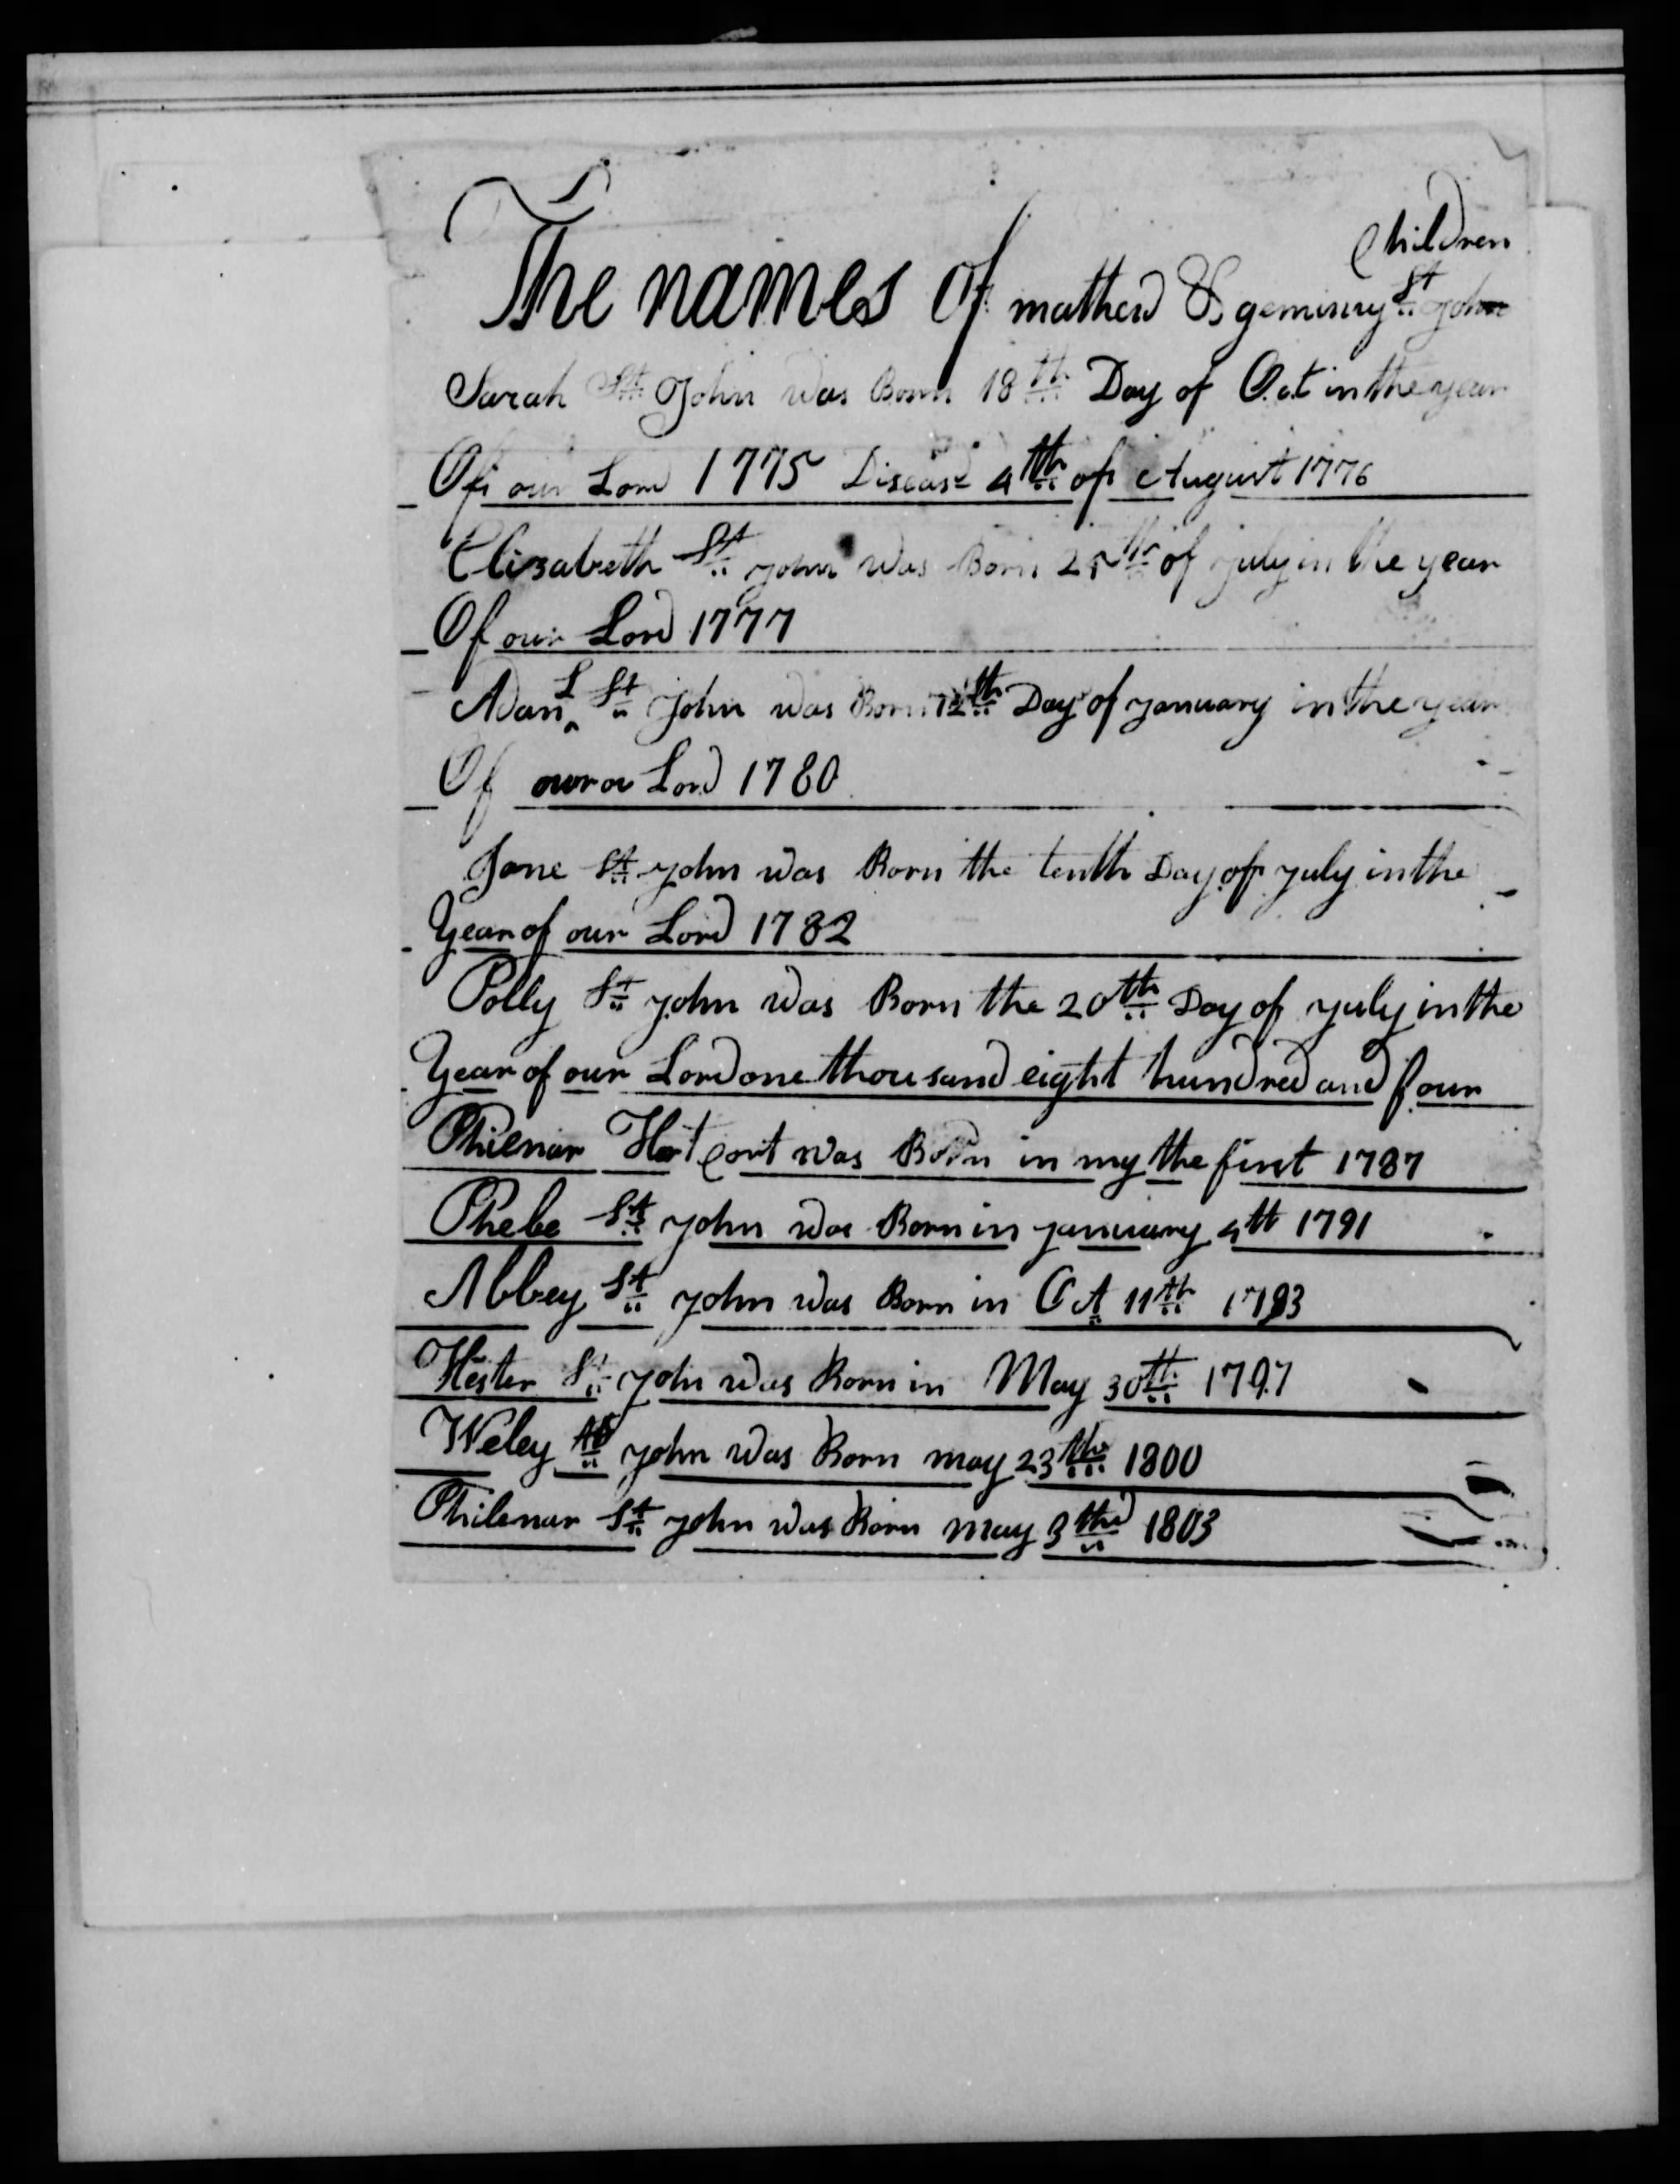 Children
The names Of mathew & geminy St John
Sarah St John was Born 18th Day of Oct in the year
Of our Lord 1775 Diseasd 4th of August 1776
Elizabeth St john was Born 25th of july in the year
Of our Lord 1777
Adan L St John was Born 12th Day of january in the year
Of our Lord 1780
Jane St john was Born the tenth Day of july in the
Year of our Lord 1782
Polly St john was Born the 20th Day of july in the
Year of our Lord one thousand eight hundred and four
Philenar was Born in my the first 1787
Phebe St john was Born in january 4th 1791
Abbey St john was Born in Oct 11th 1793
Hester St john was Born in May 30th 1797
Weley St john was Born may 23th 1800
Philenar St john was Born may 3thd 1803